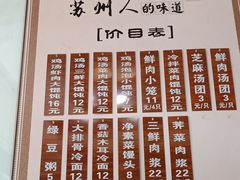 苏州人的味道
[价目表]
鸡汤虾肉大馄饨 16元
鸡汤三鲜大馄饨 12元
鸡汤菜肉大馄饨 12元
鸡汤泡泡小馄饨 10元
鲜肉小笼 11元/只
冷拌菜肉馄饨 12元
鲜肉汤团 3元/只
芝麻汤团 3元/只
绿豆粥 5
大排骨冷面 12
香菇木耳冷面 12
净素菜馒头 8
三鲜肉浆 22
荠菜肉浆 22